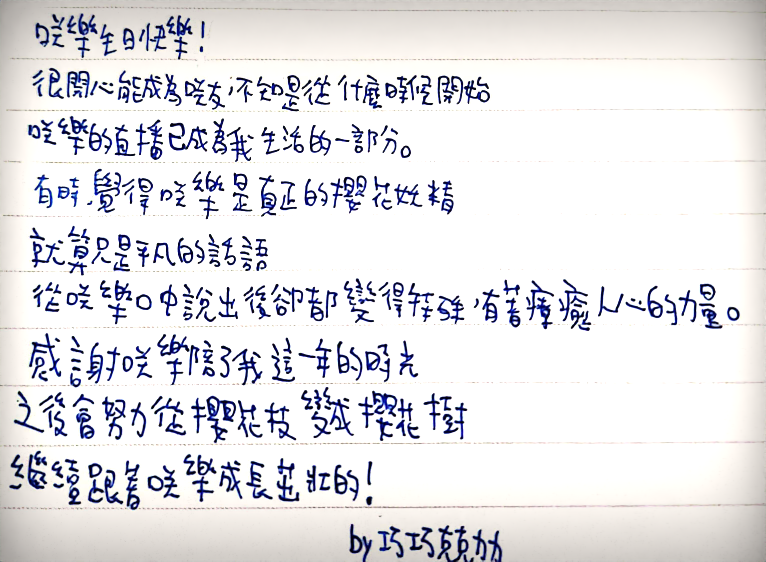 咲樂生日快樂!
很開心能成為咲友,不知是從什麼時候開始
咲樂的直播已成為我生活的一部分。
有時,覺得咲樂是真正的櫻花妖精
就算只是平凡的話語
從咲樂口中說出後卻都變得特殊,有著療癒人心的力量。
感謝咲樂陪了我這一年的時光
之後會努力從櫻花枝變成櫻花樹
繼續跟著咲樂成長茁壯的!
by巧巧克力